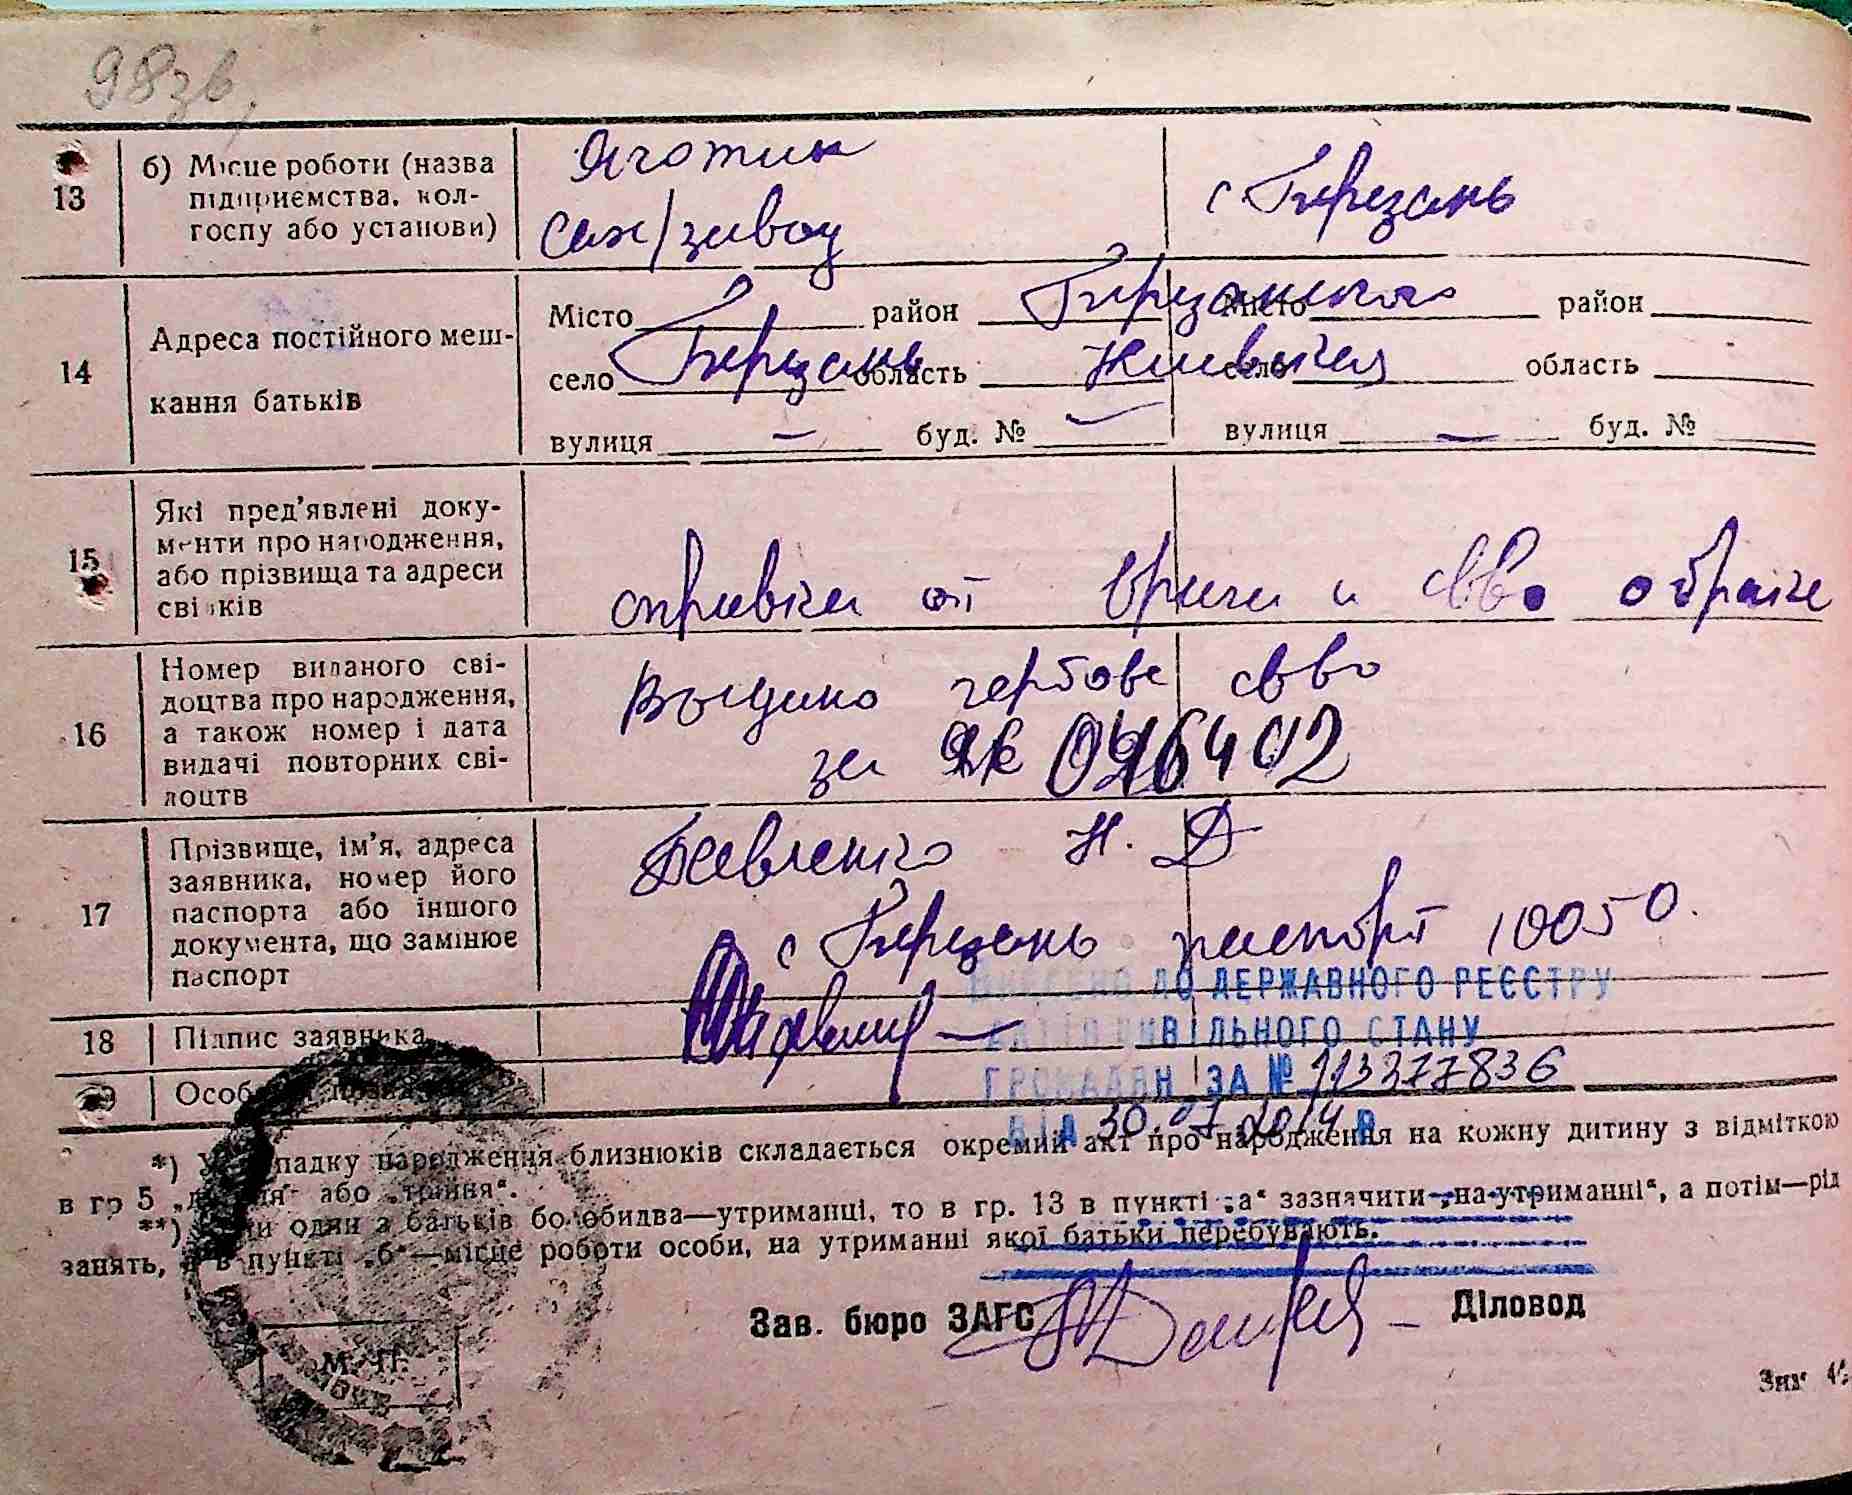 98зв.
13 б) Місце роботи (назва підприємства, колгоспу або установи)
Яготин
сах/завод
с Березань
14 Адреса постійного мешкання батьків
Місто район Березанского Місто район
село Березань область Киевская село область
вулиця — буд. № — вулиця — буд. №
15 Які пред'явлені документи про народження, або прізвища та адреси свідків
справка от врача и св-во о браке
16 Номер виданого свідоцтва про народження, а також номер і дата видачі повторних свідоцтв
Выдано гербове св-во
за ЯК
17 Прізвище, ім'я, адреса заявника, номер його паспорта або іншого документа, що замінює паспорт
Н. Д
с Березань паспорт 10050.
ВНЕСЕНО ДО ДЕРЖАВНОГО РЕЄСТРУ
АКТІВ ЦИВІЛЬНОГО СТАНУ
ГРОМАДЯН ЗА № 113377836
ВІД 30.07.2014 р
18 Підпис заявника
19 Особливі
*) У випадку народження близнюків складається окремий акт про народження на кожну дитину з відміткою
в гр 5 „двійня“ або „трійня“.
**) Коли один з батьків або обидва—утриманці, то в гр. 13 в пункті „а“ зазначити—„на утриманні“, а потім—рід
занять, а в пункті „б“—місце роботи особи, на утриманні якої батьки перебувають.
Зав. бюро ЗАГС Діловод
М. П.